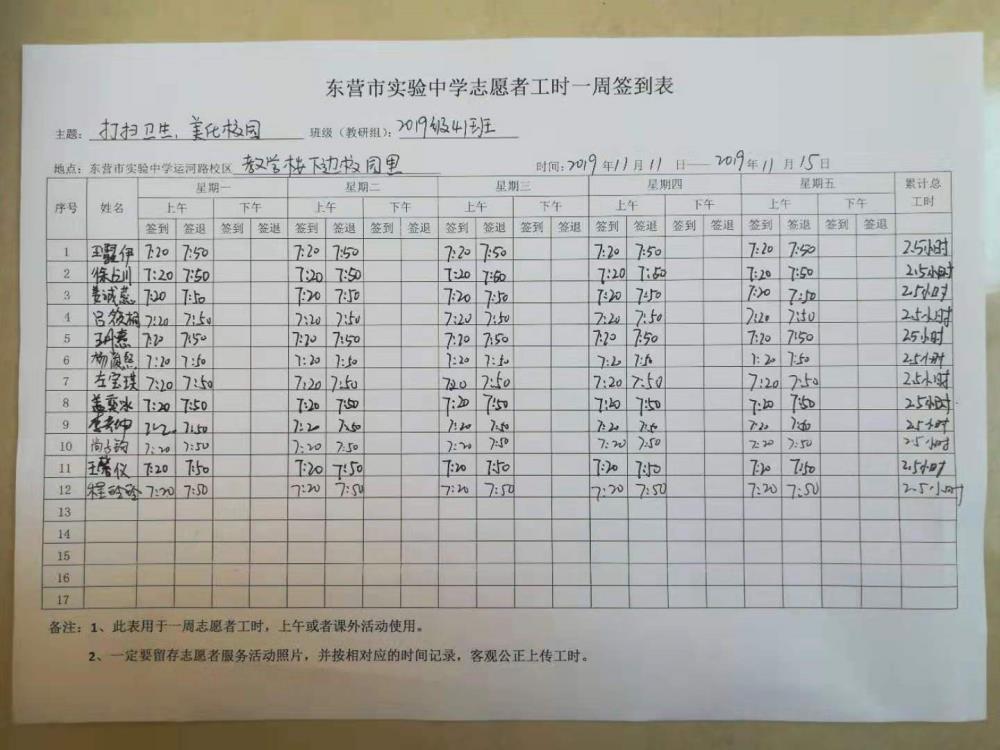 东营市实验中学志愿者工时一周签到表
主题: 打扫卫生,美化校园 班级(教研组): 2019级41班
地点:东营市实验中学运河路校区 教学楼下边校园里 时间:2019年11月11日——2019年11月15日
序号 姓名 星期一 星期二 星期三 星期四 星期五 累计总工时
上午 下午 上午 下午 上午 下午 上午 下午 上午 下午
签到 签退 签到 签退 签到 签退 签到 签退 签到 签退 签到 签退 签到 签退 签到 签退 签到 签退 签到 签退
1 7:20 7:50 7:20 7:50 7:20 7:50 7:20 7:50 7:20 7:50 2.5小时
2 7:20 7:50 7:20 7:50 7:20 7:50 7:20 7:50 7:20 7:50 2.5小时
3 7:20 7:50 7:20 7:50 7:20 7:50 7:20 7:50 7:20 7:50 2.5小时
4 7:20 7:50 7:20 7:50 7:20 7:50 7:20 7:50 7:20 7:50 2.5小时
5 7:20 7:50 7:20 7:50 7:20 7:50 7:20 7:50 7:20 7:50 2.5小时
6 7:20 7:50 7:20 7:50 7:20 7:50 7:20 7:50 7:20 7:50 2.5小时
7 左宝琪 7:20 7:50 7:20 7:50 7:20 7:50 7:20 7:50 7:20 7:50 2.5小时
8 盖奕冰 7:20 7:50 7:20 7:50 7:20 7:50 7:20 7:50 7:20 7:50 2.5小时
9 7:50 7:20 7:50 7:20 7:50 7:20 7:50 7:20 7:50 2.5小时
10 7:20 7:50 7:20 7:50 7:20 7:50 7:20 7:50 7:20 7:50 2.5小时
11 7:20 7:50 7:20 7:50 7:20 7:50 7:20 7:50 7:20 7:50 2.5小时
12 程玲玲 7:20 7:50 7:20 7:50 7:20 7:50 7:20 7:50 7:20 7:50 2.5小时
13
14
15
16
17
备注:1、此表用于一周志愿者工时,上午或者课外活动使用。
2、一定要留存志愿者服务活动照片,并按相对应的时间记录,客观公正上传工时。